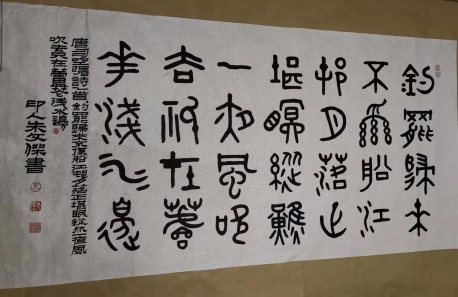 釣罷歸來
不系船江
邨月落正
堪眠縱然
一夜風吹
去祇在蘆
花淺水邊
唐司空曙詩一首釣罷歸來不系船江邨月落正堪眠縱然一夜風
吹去只在蘆花淺水邊
印人朱文傑書